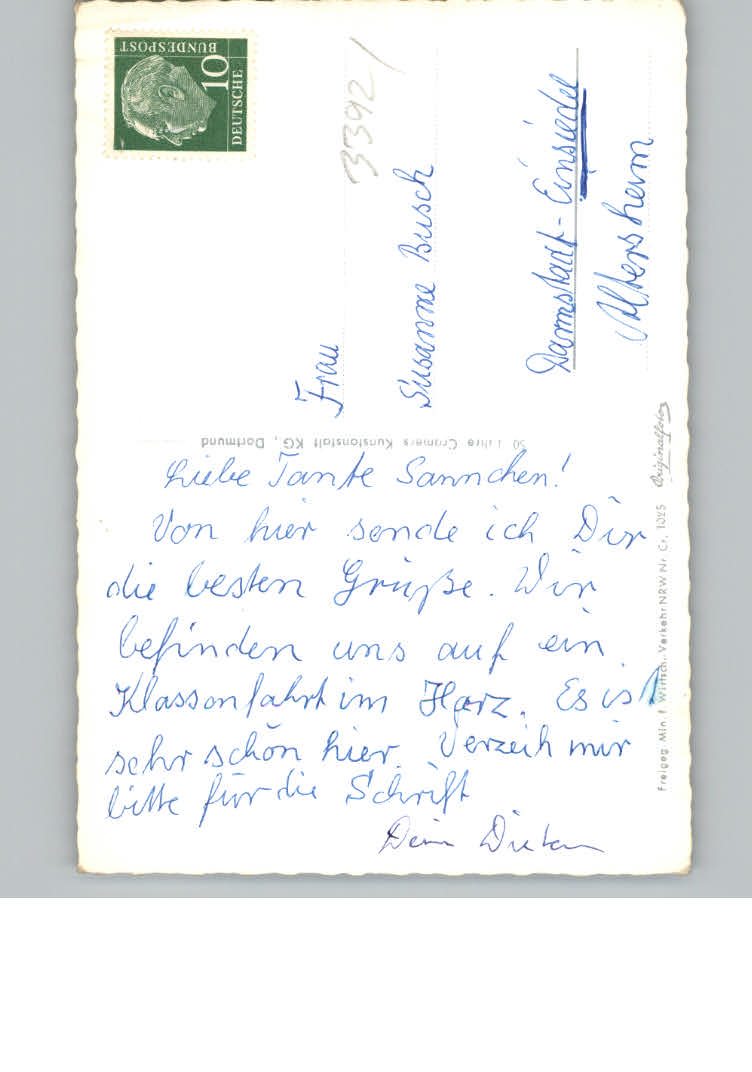 DEUTSCHE
BUNDESPOST
10
3392/
Frau
Susanne Busch
Darmstadt-Einsiedel
Altersheim
50 Jahre Cramers Kunstanstalt KG, Dortmund
Liebe Tante Sannchen!
Von hier sende ich Dir
die besten Grüße. Wir
befinden uns auf ein
Klassenfahrt im Harz. Es ist
sehr schön hier. Verzeih mir
bitte für die Schrift
Dein
Originalfoto
Freigeg. Min. f. Wirtsch. Verkehr NRW Nr. Cr. 1025